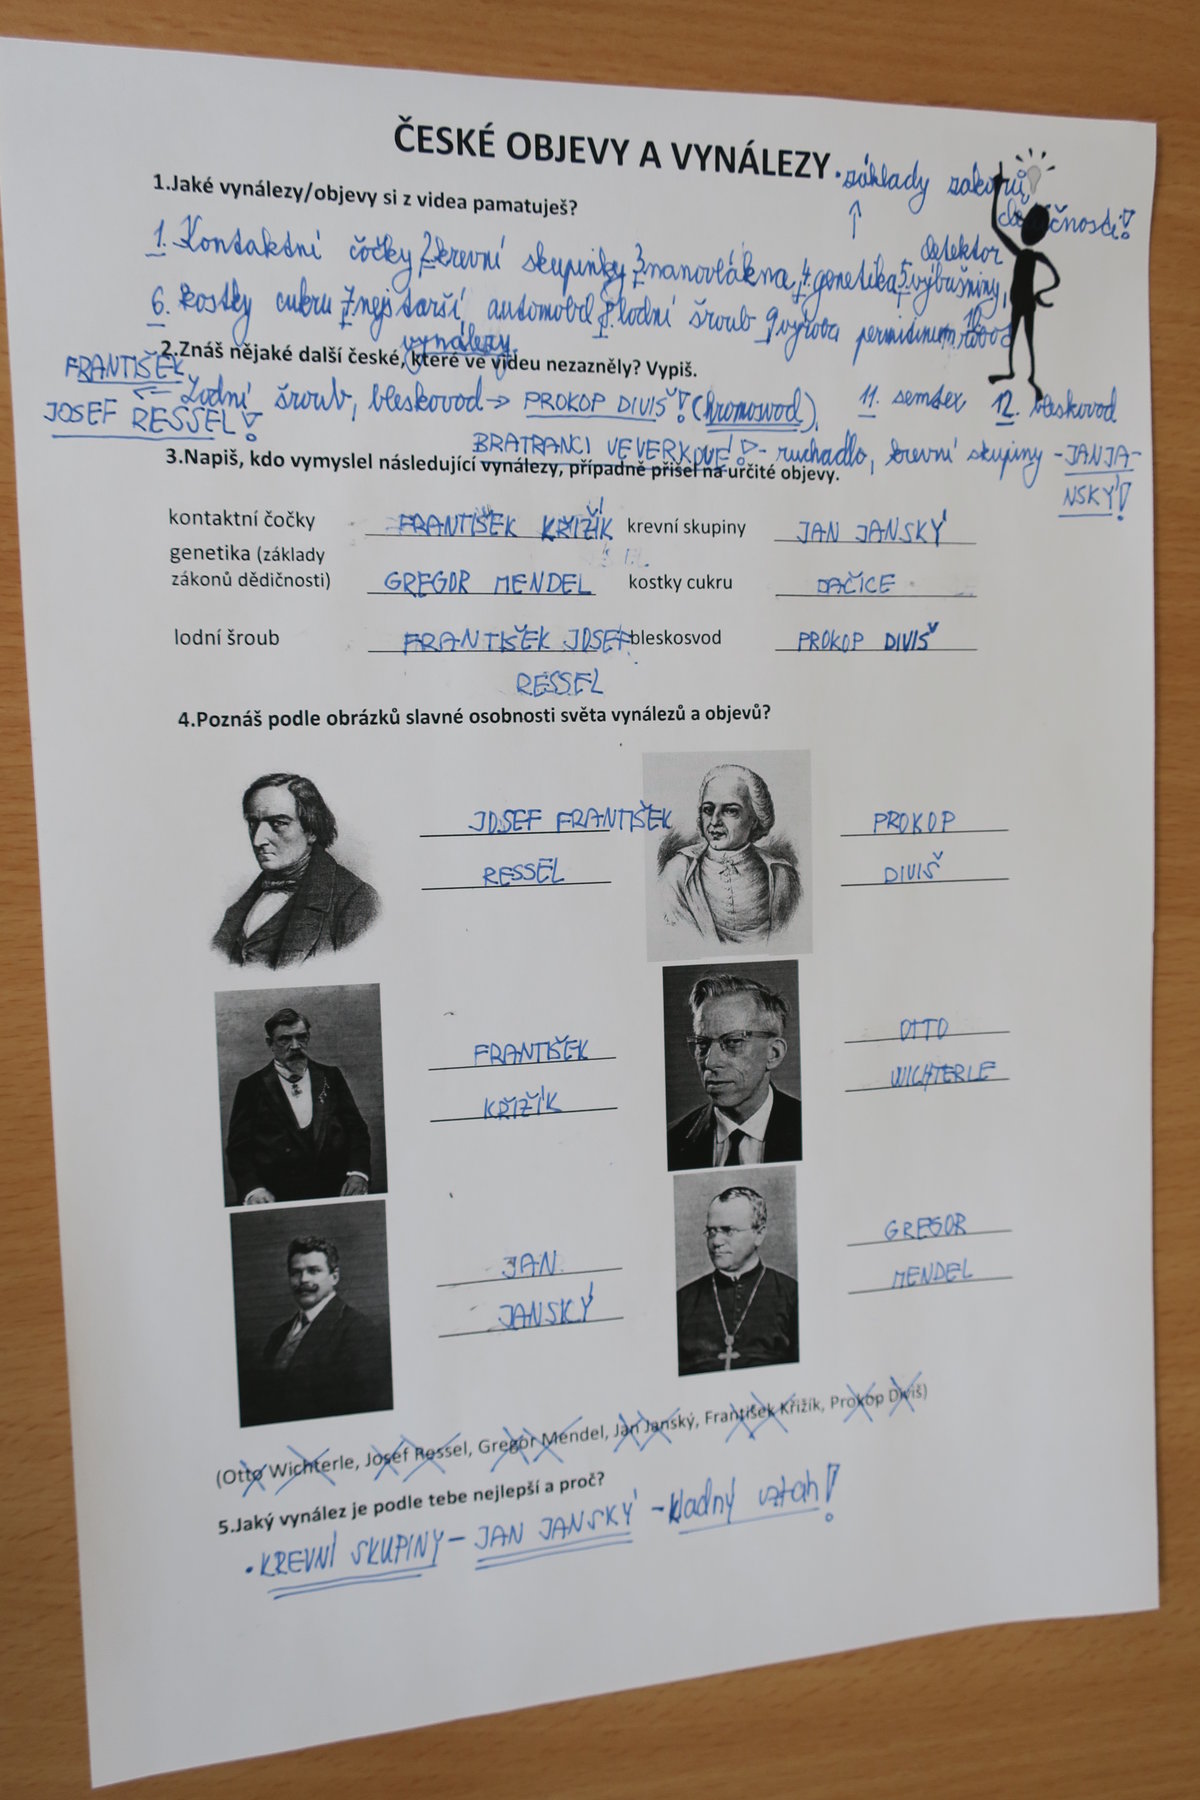 ČESKÉ OBJEVY A VYNÁLEZY
• základy zákonů
dědičnosti!
1.Jaké vynálezy/objevy si z videa pamatuješ?
detektor
1. Kontaktní čočky, 2. krevní skupinky 3. nanovlákna, 4. genetika, 5. výbušniny,
6. kostky cukru 7. nejstarší automobil 8. lodní šroub 9. výroba 10.
vynálezy,
2.Znáš nějaké další české, které ve videu nezazněly? Vypiš.
FRANTIŠEK
JOSEF RESSEL! ← Lodní šroub, bleskovod → PROKOP DIVIŠ! (hromosvod). 11. semtex 12. bleskovod
BRATRANCI VEVERKOVÉ! - ruchadlo, krevní skupiny - JAN JA-
NSKÝ!
3.Napiš, kdo vymyslel následující vynálezy, případně přišel na určité objevy.
kontaktní čočky FRANTIŠEK KŘIŽÍK krevní skupiny JAN JANSKÝ
genetika (základy
zákonů dědičnosti) GREGOR MENDEL kostky cukru DAČICE
lodní šroub FRANTIŠEK JOSEF bleskosvod PROKOP DIVIŠ
RESSEL
4.Poznáš podle obrázků slavné osobnosti světa vynálezů a objevů?
JOSEF FRANTIŠEK PROKOP
RESSEL DIVIŠ
FRANTIŠEK OTTO
KŘIŽÍK WICHTERLE
JAN GREGOR
JANSKÝ MENDEL
(Otto Wichterle, Josef Ressel, Gregor Mendel, Jan Janský, František Křižík, Prokop Diviš)
5.Jaký vynález je podle tebe nejlepší a proč?
• KREVNÍ SKUPINY - JAN JANSKÝ - kladný vztah!